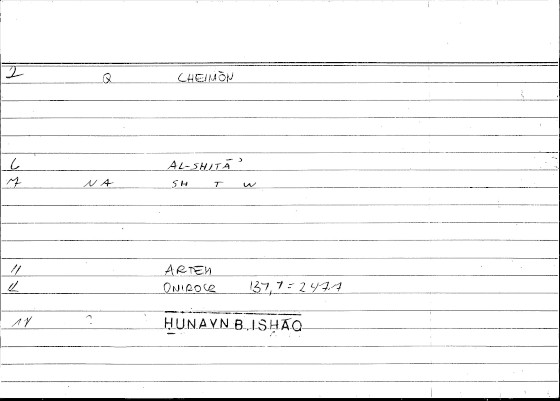 2 Q CHEIMÒN
6 AL-SHITĀʾ
7 NA SH T W
11 ARTEM
12 ONIROCR 137,7 = 247,1
14 ? ḤUNAYN B. ISḤĀQ